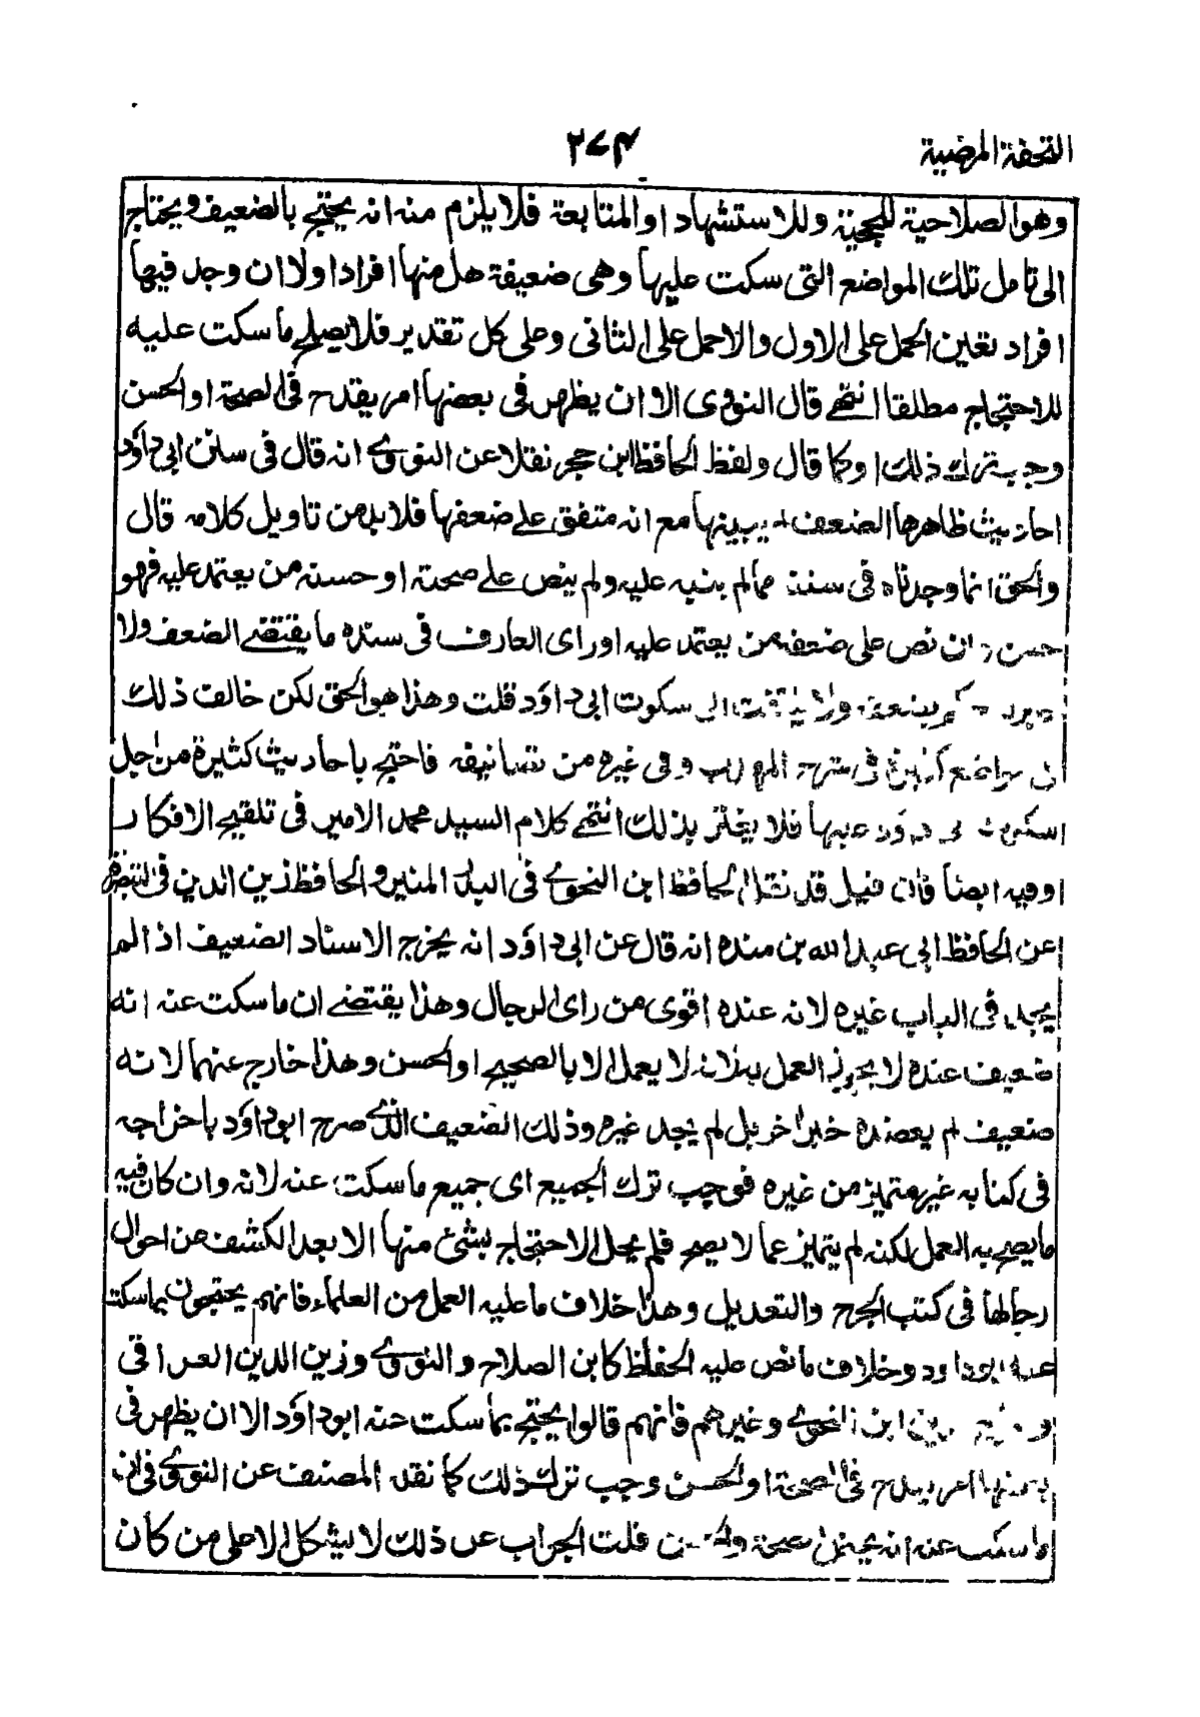 التحفة المرضية
٢٧٤
وهو الصلاحية للحجية وللاستشهاد او المتابعة فلا يلزم منه انه يحتج بالضعيف ويحتاج
الى تامل تلك المواضع التى سكت عليها وهى ضعيفة هل منها افراد اولا ان وجد فيها
افراد تعين الحمل على الاول والاحمل على الثانى وعلى كل تقدير فلا يصلح ما سكت عليه
للاحتجاج مطلقا انتهى قال النووى الا ان يظهر فى بعضها امر يقدح فى الصحة او الحسن
وجب ترك ذلك او كما قال ولفظ الحافظ ابن حجر نقلا عن النووى انه قال فى سنن ابى داؤد
احاديث ظاهرها الضعف لم يبينها مع انه متفق على ضعفها فلا بد من تاويل كلامه قال
والحق انما وجدناه فى سننه مما لم ينبه عليه ولم ينص على صحته او حسنه من يعتمد عليه فهو
حسن وان نص على ضعفه من يعتمد عليه او راى العارف فى سنده ما يقتضى الضعف ولا
سكوت ابى داؤد قلت وهذا هو الحق لكن خالف ذلك
فى شرح المهذب وفى غيره من تصانيفه فاحتج باحاديث كثيرة من اجل
سكوت ابى داود عليها فلا يغتر بذلك انتهى كلام السيد محمد الامير فى تلقيح الافكار
وفيه ايضا فان قيل قد نقل الحافظ ابن النحوى فى البدر المنير والحافظ زين الدين فى
عن الحافظ ابى عبد الله بن منده انه قال عن ابى داؤد انه يخرج الاسناد الضعيف اذ الم
يجد فى الباب غيره لانه عنده اقوى من راى الرجال وهذا يقتضى ان ما سكت عنه انه
ضعيف عنده لا يجوز العمل به لانه لا يعمل الا بالصحيح او الحسن وهذا خارج عنهما لانه
ضعيف لم يعضده خبر اخر بل لم يجد غيره وذلك الضعيف الذى صرح ابو داؤد باخراجه
فى كتابه غير متميز من غيره فوجب ترك الجميع اى جميع ما سكت عنه لانه وان كان فيه
ما يصح به العمل لكنه لم يتميز عما لا يصح فلم يحل الاحتجاج بشئ منها الا بعد الكشف عن احوال
رجالها فى كتب الجرح والتعديل وهذا خلاف ما عليه العمل من العلماء فانهم يحتجون بما سكت
عنه ابو داود وخلاف ما نص عليه الحفاظ كابن الصلاح والنووى وزين الدين العراقى
ابن النحوى وغيرهم فانهم قالوا يحتج بما سكت عنه ابو داؤد الا ان يظهر فى
بعضها امر يقدح فى الصحة او الحسن وجب ترك ذلك كما نقله المصنف عن النووى فى ان
ما سكت عنه انه يحتمل صحة والحسن قلت الجواب عن ذلك لا يشكل الا على من كان